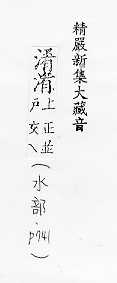 精嚴新集大藏音
上正並
戶交乀
(水部.p741)